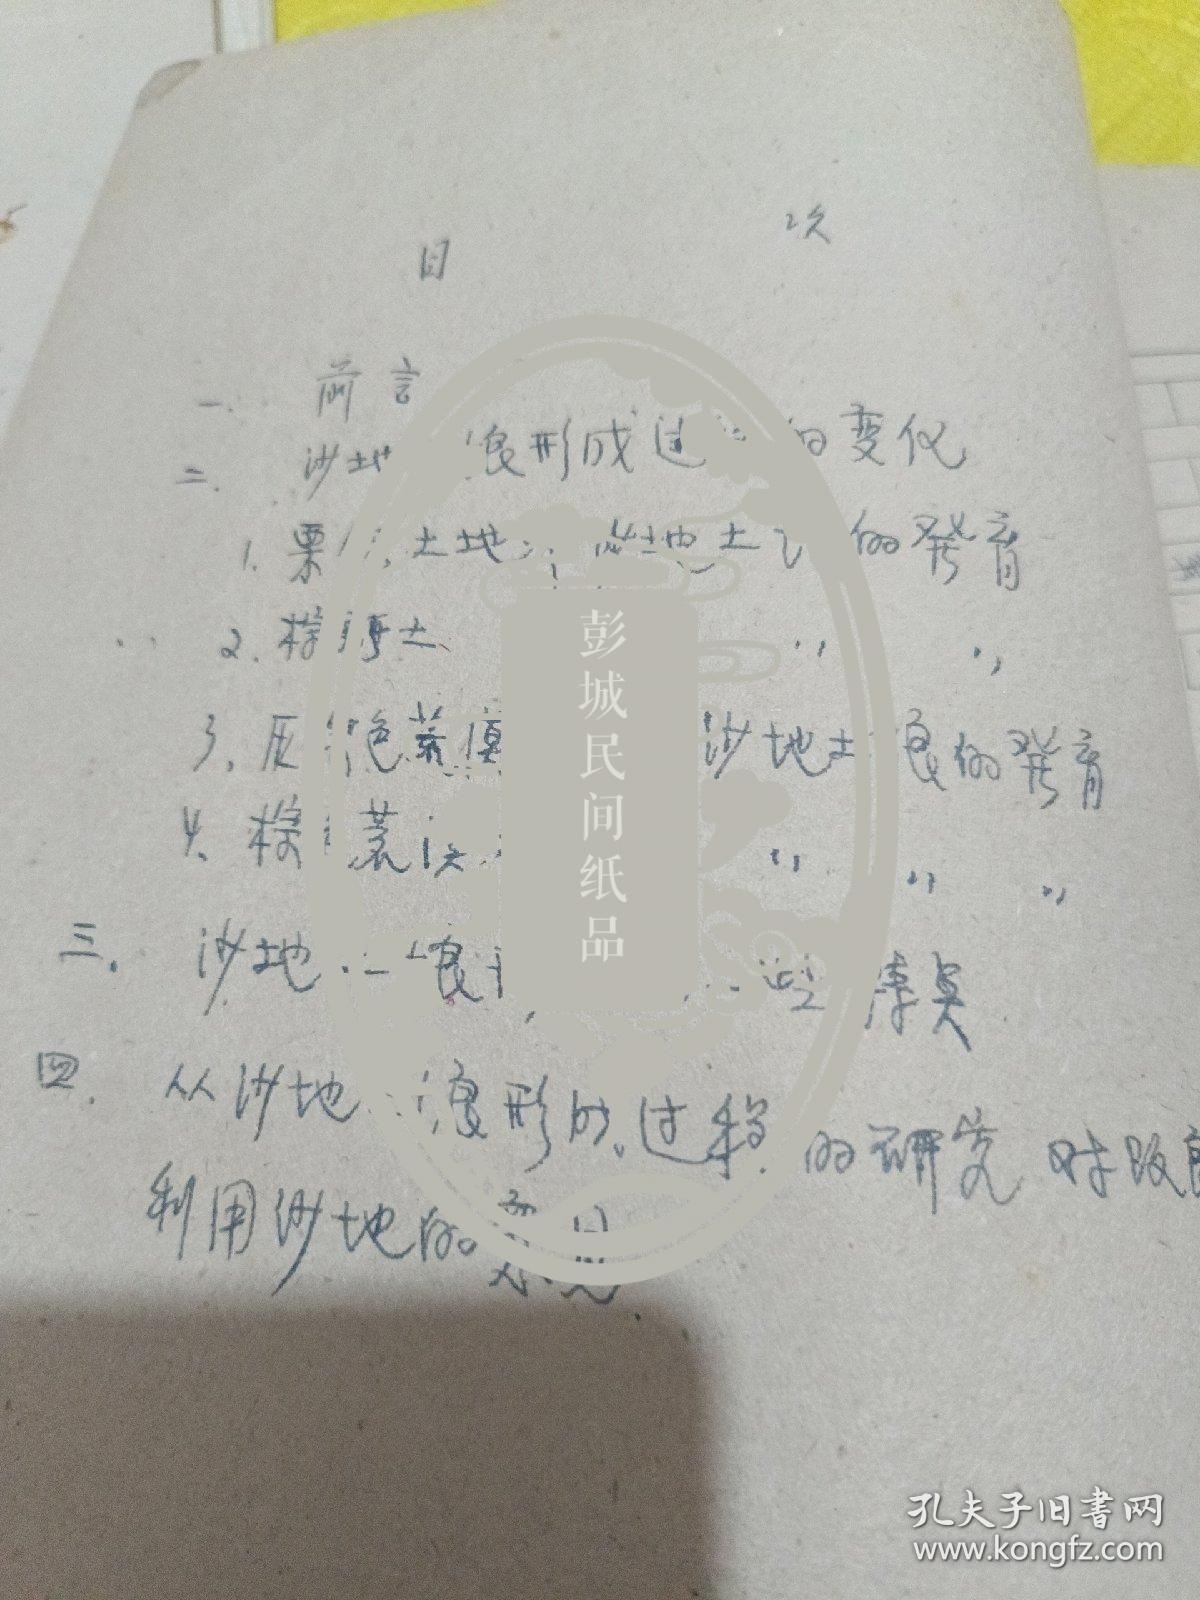 目 次
一. 前言
二. 沙地 形成过 的变化
1. 栗 土地 沙地土 的発育
2. 棕 土 〃 〃
3. 灰 色荒漠 沙地土 的発育
4. 棕 荒漠 〃 〃 〃
三. 沙地 些特点
四. 从沙地 形成过程的研究对改良
利用沙地的意见.
彭城民间纸品
孔夫子旧书网
www.kongfz.com